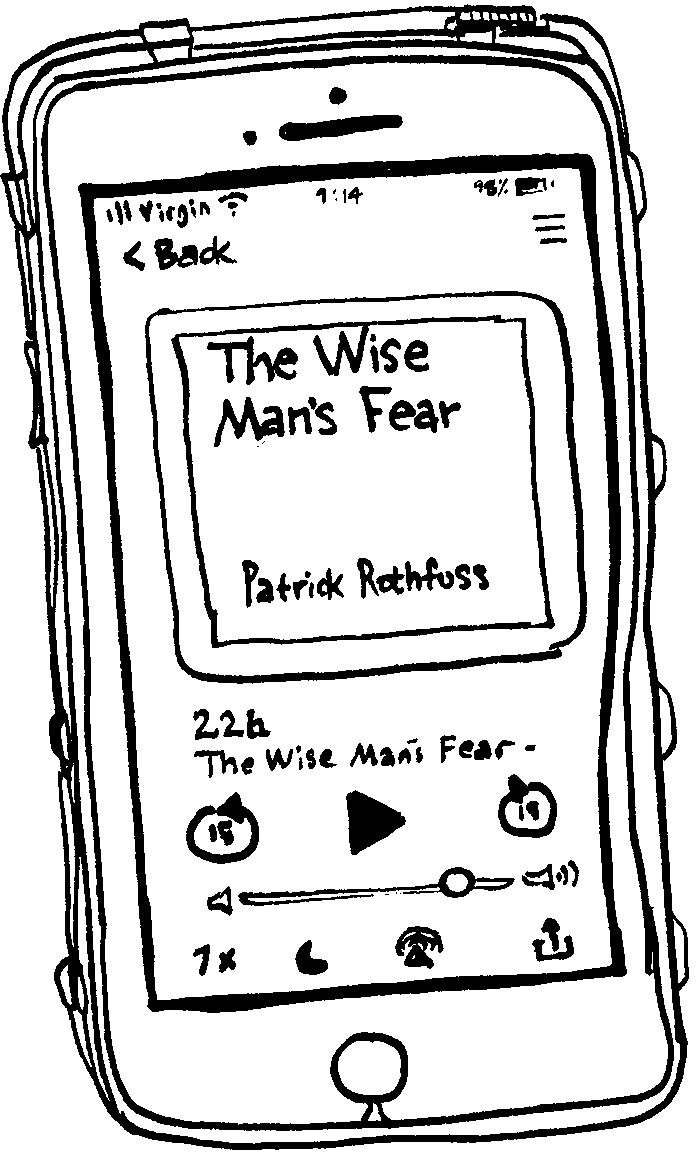 Virgin 9:14 98%
< Back
The Wise
Man's Fear
Patrick Rothfuss
22h
The Wise Man's Fear -
15 15
1x